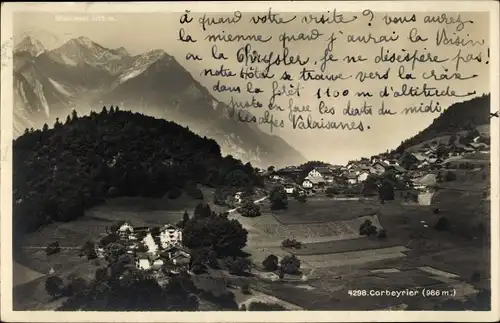 à quand votre visite ? vous aurez
la mienne quand j'aurai la Voisin
ou la Chrysler. je ne désespère pas !
notre hôtel se trouve vers la croix
dans la forêt 1100 m d'altitude
juste en face les dents du midi
les alpes Valaisannes.
4298. Corbeyrier (986 m.)